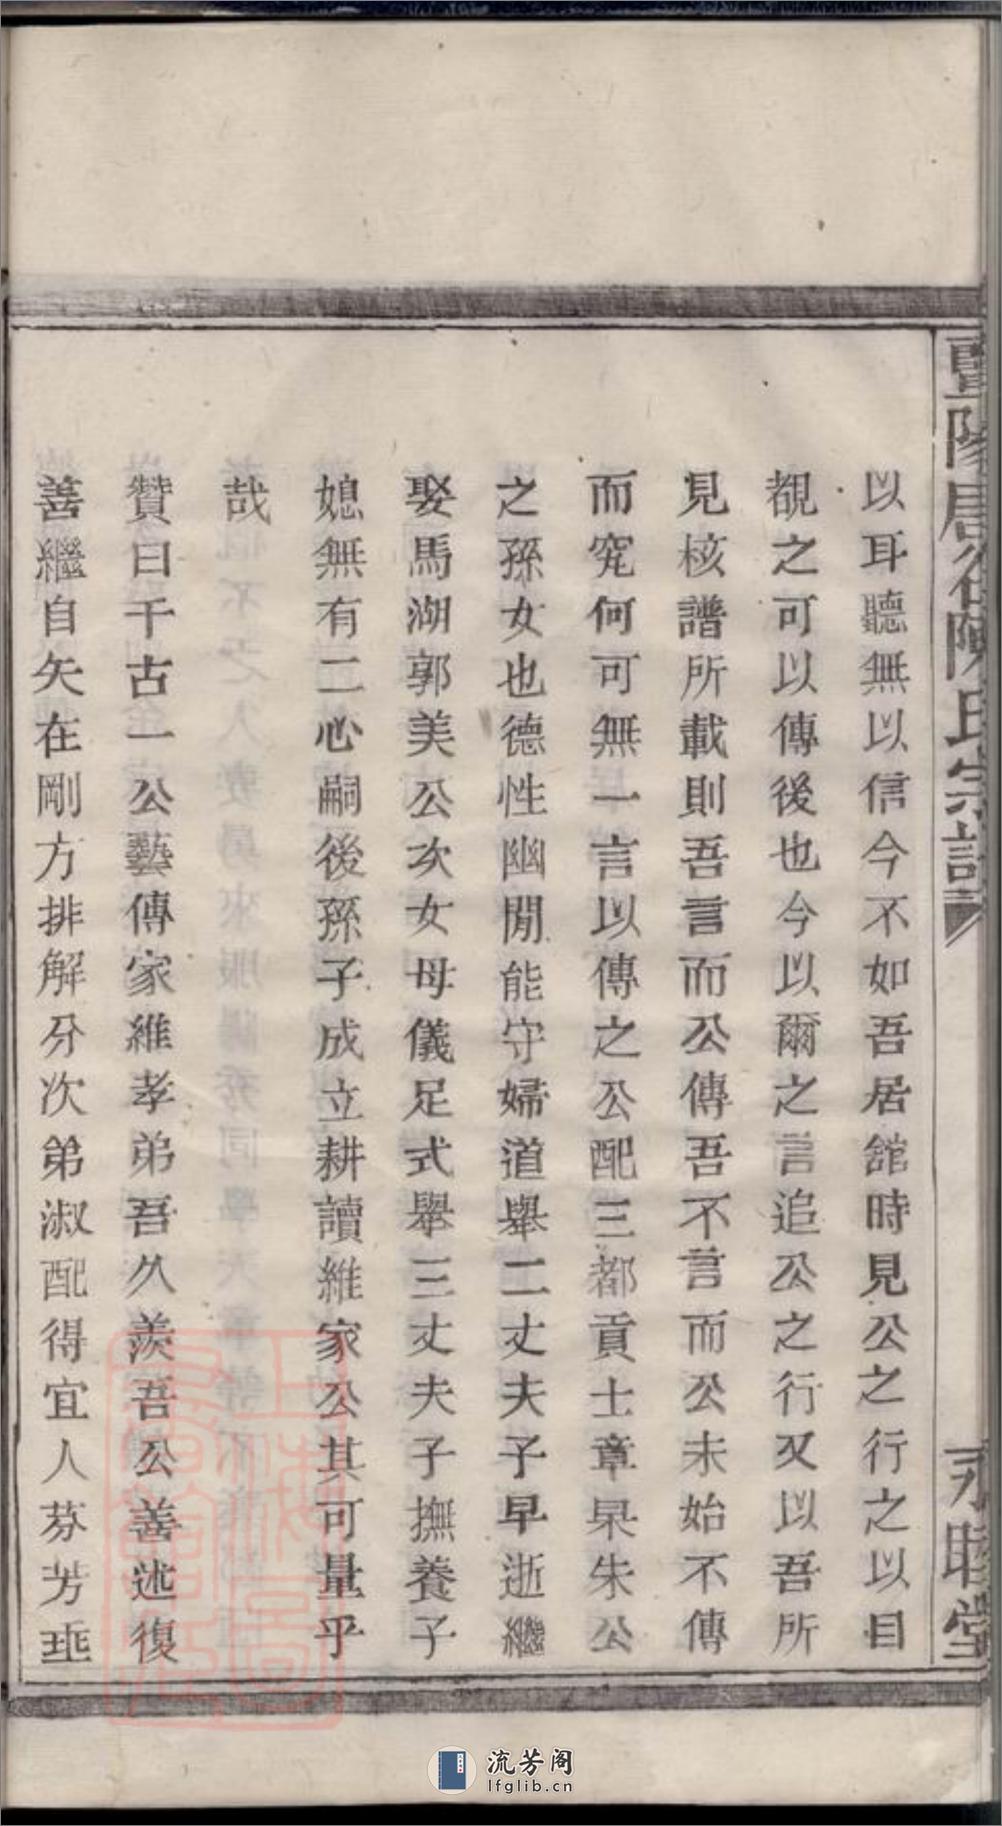 暨陽唐谷陳氏宗譜
永睦堂
以耳聽無以信今不如吾居舘時見公之行之以目
覩之可以傳後也今以爾之言追公之行又以吾所
見核譜所載則吾言而公傳吾不言而公未始不傳
而究何可無一言以傳之公配三都貢士章杲朱公
之孫女也德性幽閒能守婦道舉二丈夫子早逝繼
娶馬湖郭美公次女母儀足式舉三丈夫子撫養子
媳無有二心嗣後孫子成立耕讀維家公其可量乎
哉
贊曰千古一公藝傳家維孝弟吾久羨吾公善述復
善繼自矢在剛方排解分次第淑配得宜人芬芳垂
上海圖書館藏
流芳阁
lfglib.cn